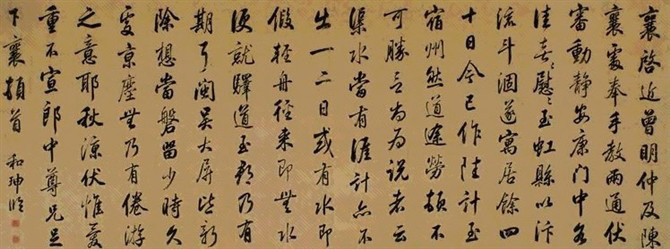 襄啓近曾明仲及陳
襄處奉手教兩通伏
審動静安康門中各
佳喜々慰々至虹縣以汴
流斗涸遂寓居餘四
十日今已作陸計至
宿州然道途勞頓不
可勝言尚為說者云
渠水當有涯計亦不
出一二日或有水即
假輕舟徑來即無水
便就驛道至都乃有
期耳閩吳大屏皆新
除想當磐留少時久
處京塵無乃有倦游
之意耶秋涼伏惟愛
重不宣郎中尊兄足
下襄頓首 和珅臨